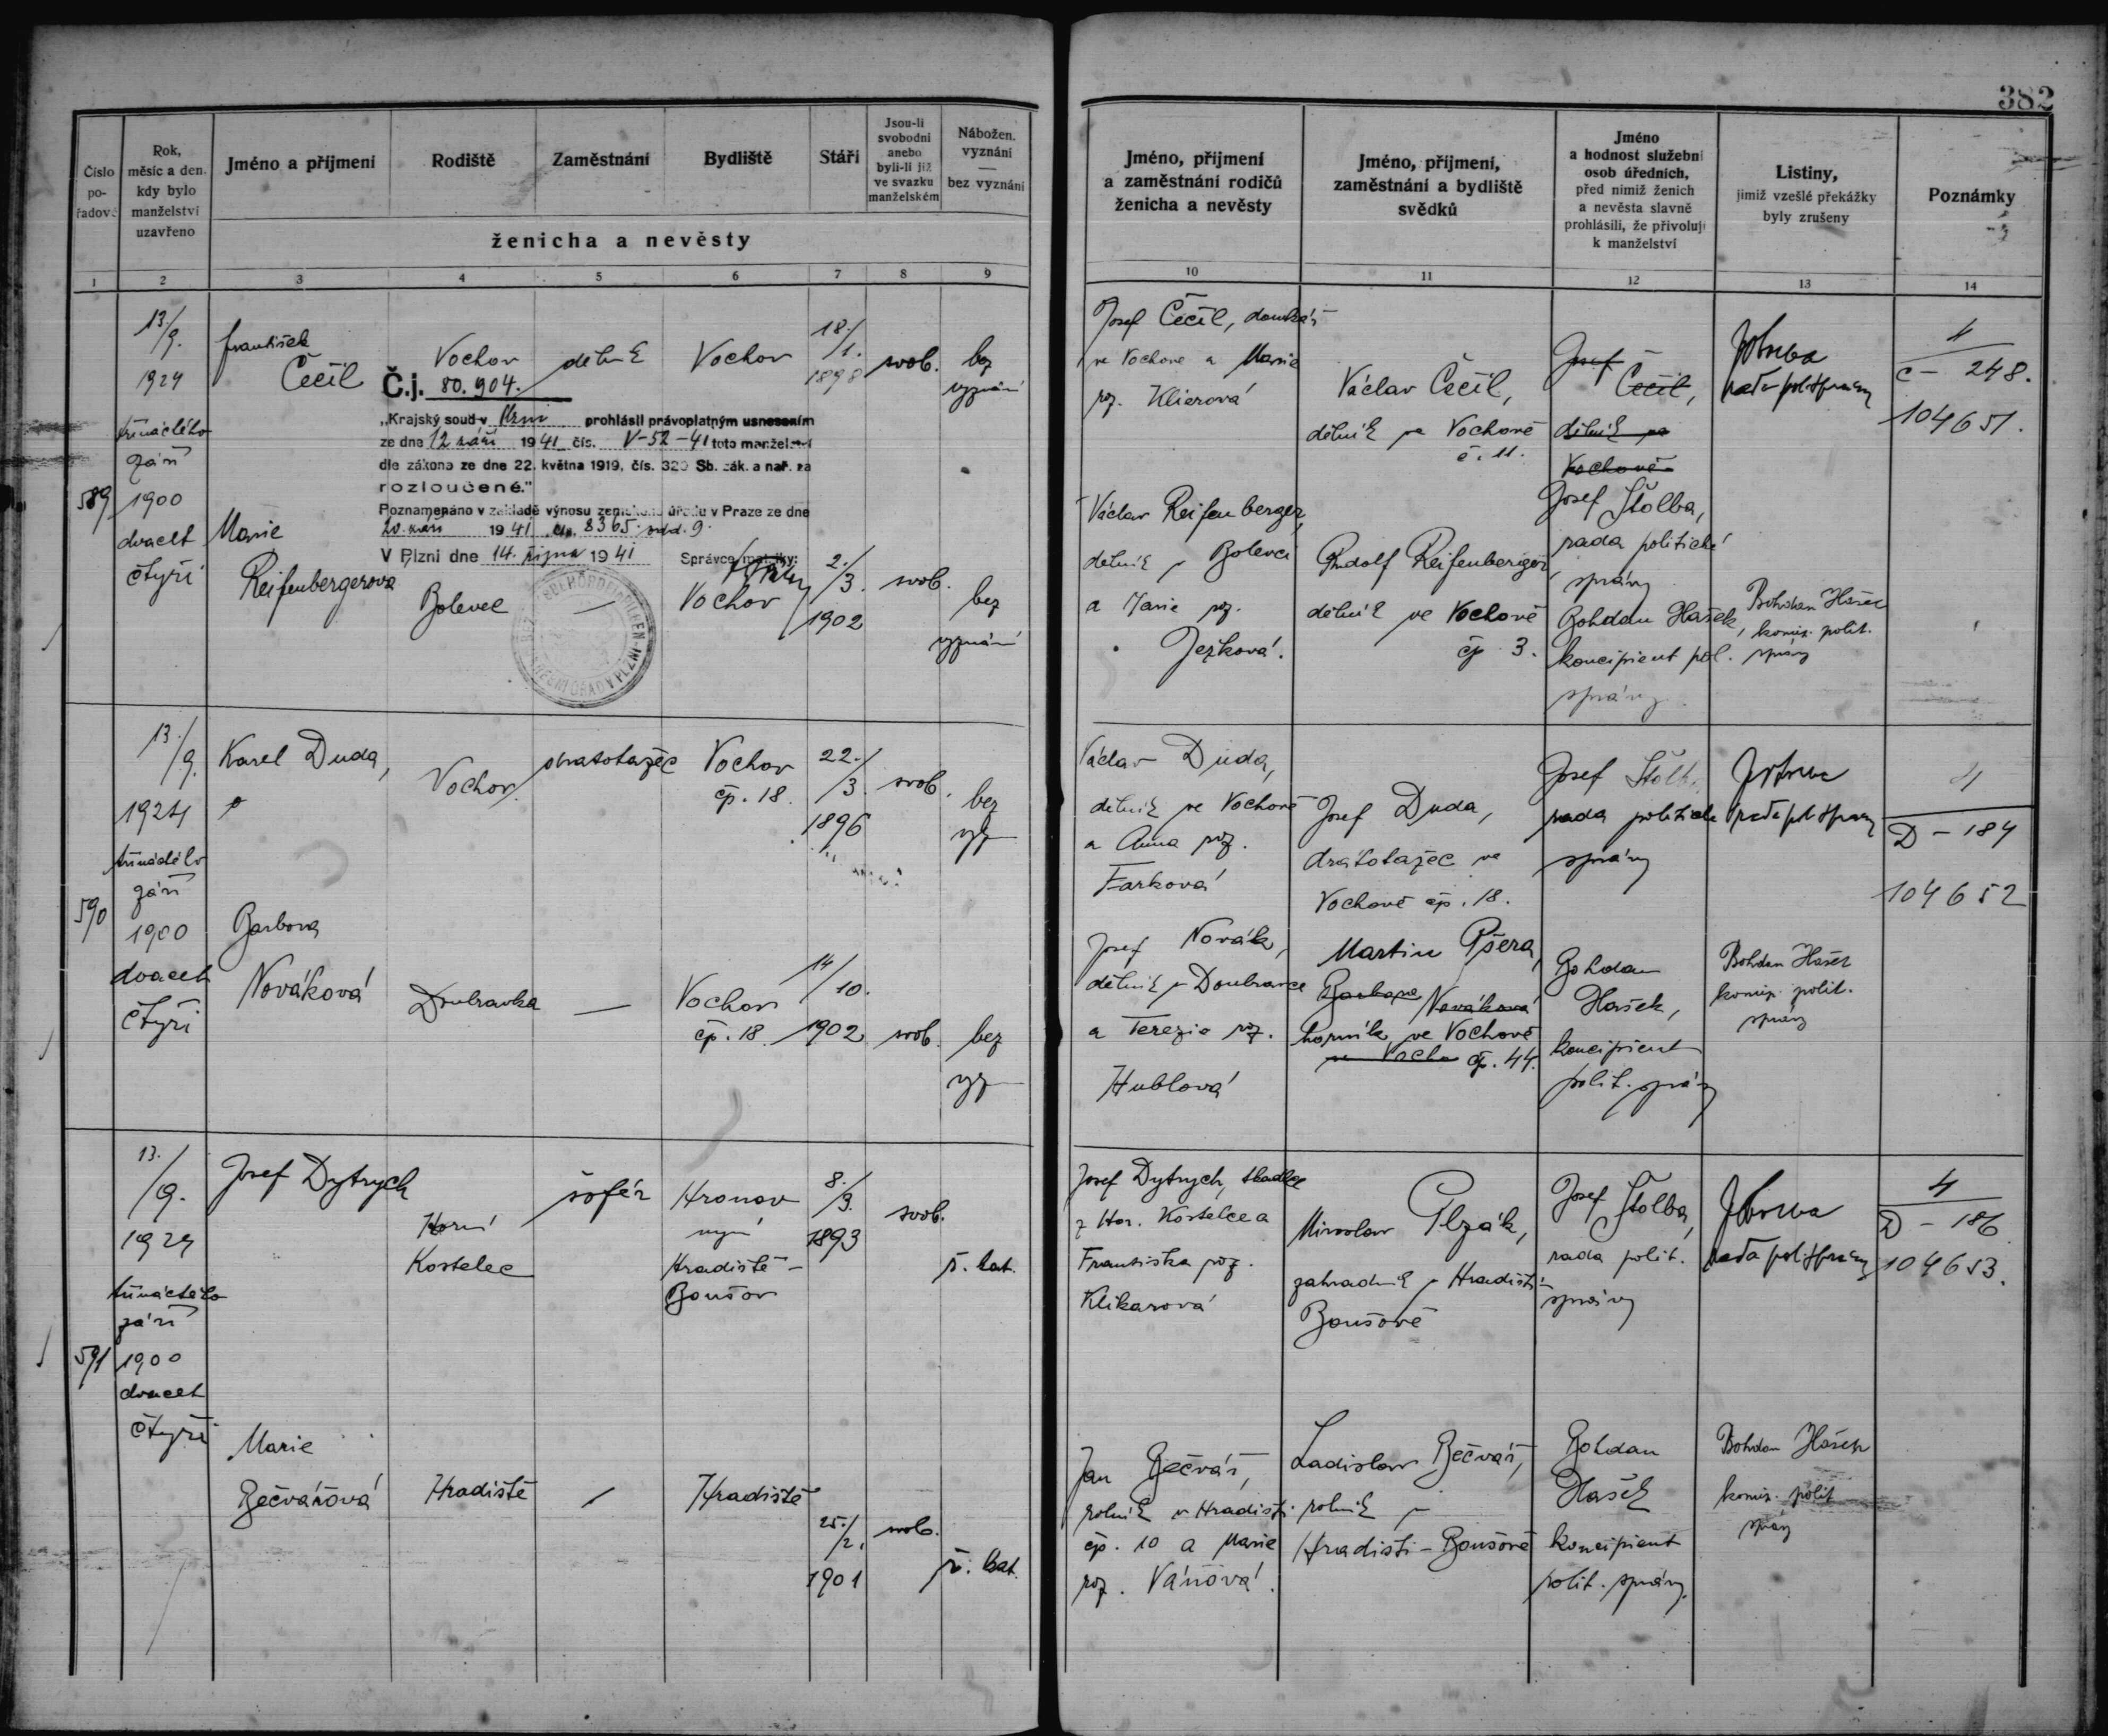 382
Číslo pořadové
Rok, měsíc a den, kdy bylo manželství uzavřeno
Jméno a příjmení
Rodiště
Zaměstnání
Bydliště
Stáří
Jsou-li svobodni anebo byli-li již ve svazku manželském
Nábožen. vyznání — bez vyznání
ženicha a nevěsty
Jméno, příjmení a zaměstnání rodičů ženicha a nevěsty
Jméno, příjmení, zaměstnání a bydliště svědků
Jméno a hodnost služební osob úředních, před nimiž ženich a nevěsta slavně prohlásili, že přivolují k manželství
Listiny, jimiž vzešlé překážky byly zrušeny
Poznámky
1 2 3 4 5 6 7 8 9 10 11 12 13 14
589
13./9.
1924
třináctého
září
1900
dvacet
čtyři
František
Čečil
Vochov
dělník
Vochov
18./1.
1898
svob.
bez
vyznání
Č.j. 80.904.
„Krajský soud v Plzni prohlásil právoplatným usnesením
ze dne 12 září 1941 čís. V-52-41 toto manžel.
dle zákona ze dne 22. května 1919, čís. 320 Sb. zák. a nař. za
rozloučené."
Poznamenáno v základě výnosu zemského úřadu v Praze ze dne
20. září 1941 čís. 8365 odd. 9.
V Plzni dne 14. října 1941 Správce matriky:
Marie
Reifenbergerova
Bolevec
—
Vochov
2./3.
1902
svob.
bez
vyznání
Josef Čečil, domkář
ve Vochově a Marie
roz. Klierová
Václav Reifenberger,
dělník v Bolevci
a Marie roz.
Ježková.
Václav Čečil,
dělník ve Vochově
č. 11.
Rudolf Reifenberger
dělník ve Vochově
čp. 3.
Josef
Čečil,
dělník ve
Vochově
Josef Štolba,
rada politické
správy
Bohdan Hašek,
koncipient pol.
správy
rada polit správy
Bohdan Hašek
komis. polit.
správy
4
Č - 248.
104651.
590
13./9.
1924
třináctého
září
1900
dvacet
čtyři
Karel Duda,
Vochov
dratotažec
Vochov
čp. 18.
22./3.
1896
svob.
bez
vyz
Barbora
Nováková
Doubravka
—
Vochov
čp. 18.
14/10.
1902
svob.
bez
vyz
Václav Duda,
dělník ve Vochově
a Anna roz.
Farková
Josef Novák,
dělník v Doubravce
a Terezie roz.
Hublová
Josef Duda,
drátotažec ve
Vochově čp. 18.
Martin Pšera,
Barbora Nováková
horník, ve Vochově
ve Vocho čp. 44.
Josef Štolba
rada politické
správy
Bohdan
Hašek,
koncipient
polit. správy
rada pol správy
Bohdan Hašek
komis. polit.
správy
4
D - 184
104652
591
13./9.
1924
třináctého
září
1900
dvacet
čtyři
Josef Dytrych
Horní
Kostelec
šofér
Hronov
nyní
Hradiště -
Boušov
8./9.
1893
svob.
ř. kat.
Marie
Bečvářová
Hradiště
—
Hradiště
25./2.
1901
svob.
ř. kat.
Josef Dytrych, tkadlec
z Hor. Kostelce a
Františka roz.
Klikarová
Jan Bečvář,
rolník v Hradišti
čp. 10 a Marie
roz. Váňová.
Miroslav Plzák,
zahradník v Hradišti-
Boušově
Ladislav Bečvář,
rolník v
Hradišti - Boušově
Josef Štolba,
rada polit.
správy
Bohdan
Hašek
koncipient
polit. správy.
rada polit správy
Bohdan Hašek
komis. polit
správy
4
D - 186
104653.